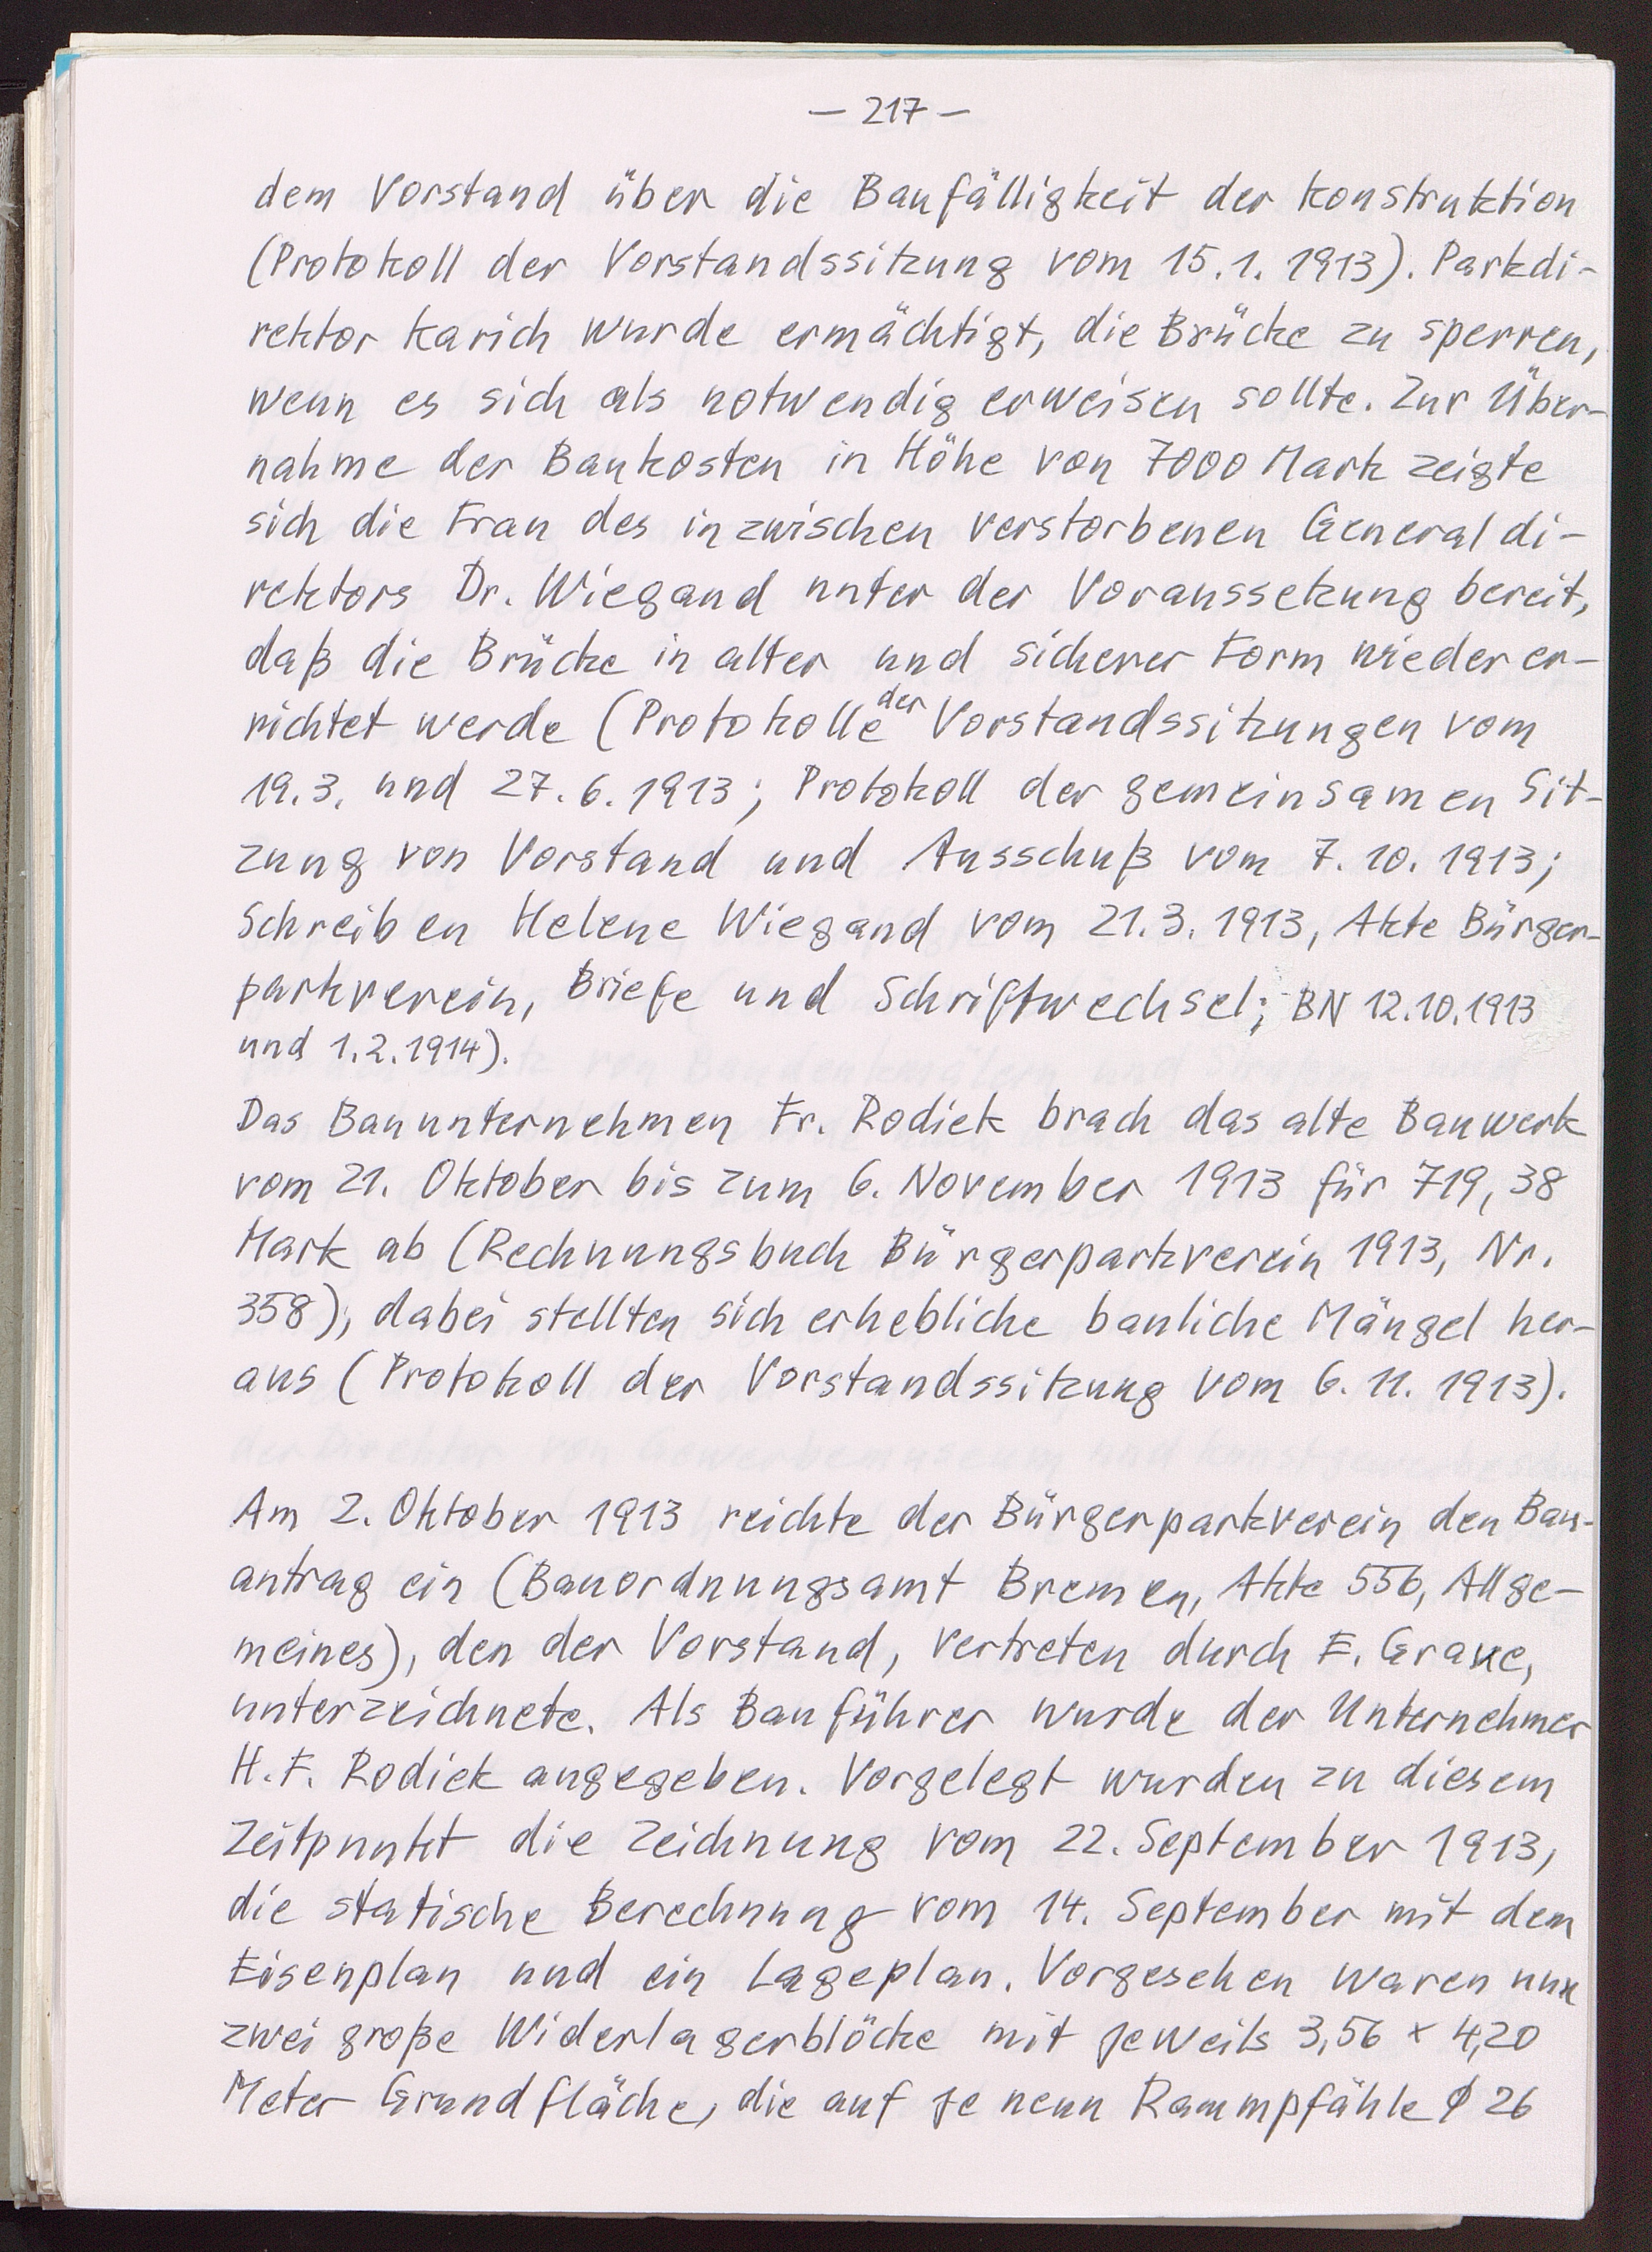 — 217 —
dem Vorstand über die Baufälligkeit der Konstruktion
(Protokoll der Vorstandssitzung vom 15.1.1913). Parkdi-
rektor Karich wurde ermächtigt, die Brücke zu sperren,
wenn es sich als notwendig erweisen sollte. Zur Über-
nahme der Baukosten in Höhe von 7000 Mark zeigte
sich die Frau des inzwischen verstorbenen Generaldi-
rektors Dr. Wiegand unter der Voraussetzung bereit,
daß die Brücke in alter und sicherer Form wiederer-
richtet werde (Protokolle der Vorstandssitzungen vom
19.3. und 27.6.1913; Protokoll der gemeinsamen Sit-
zung von Vorstand und Ausschuß vom 7.10.1913;
Schreiben Helene Wiegand vom 21.3.1913, Akte Bürger-
parkverein, Briefe und Schriftwechsel; BN 12.10.1913
und 1.2.1914).
Das Bauunternehmen Fr. Rodiek brach das alte Bauwerk
vom 21. Oktober bis zum 6. November 1913 für 719,38
Mark ab (Rechnungsbuch Bürgerparkverein 1913, Nr.
358); dabei stellten sich erhebliche bauliche Mängel her-
aus (Protokoll der Vorstandssitzung vom 6.11.1913).
Am 2. Oktober 1913 reichte der Bürgerparkverein den Bau-
antrag ein (Bauordnungsamt Bremen, Akte 556, Allge-
meines), den der Vorstand, vertreten durch E. Grave,
unterzeichnete. Als Bauführer wurde der Unternehmer
H.F. Rodiek angegeben. Vorgelegt wurden zu diesem
Zeitpunkt die Zeichnung vom 22. September 1913,
die statische Berechnung vom 14. September mit dem
Eisenplan und ein Lageplan. Vorgesehen waren nun
zwei große Widerlagerblöcke mit jeweils 3,56 x 4,20
Meter Grundfläche, die auf je neun Rammpfähle ∅ 26